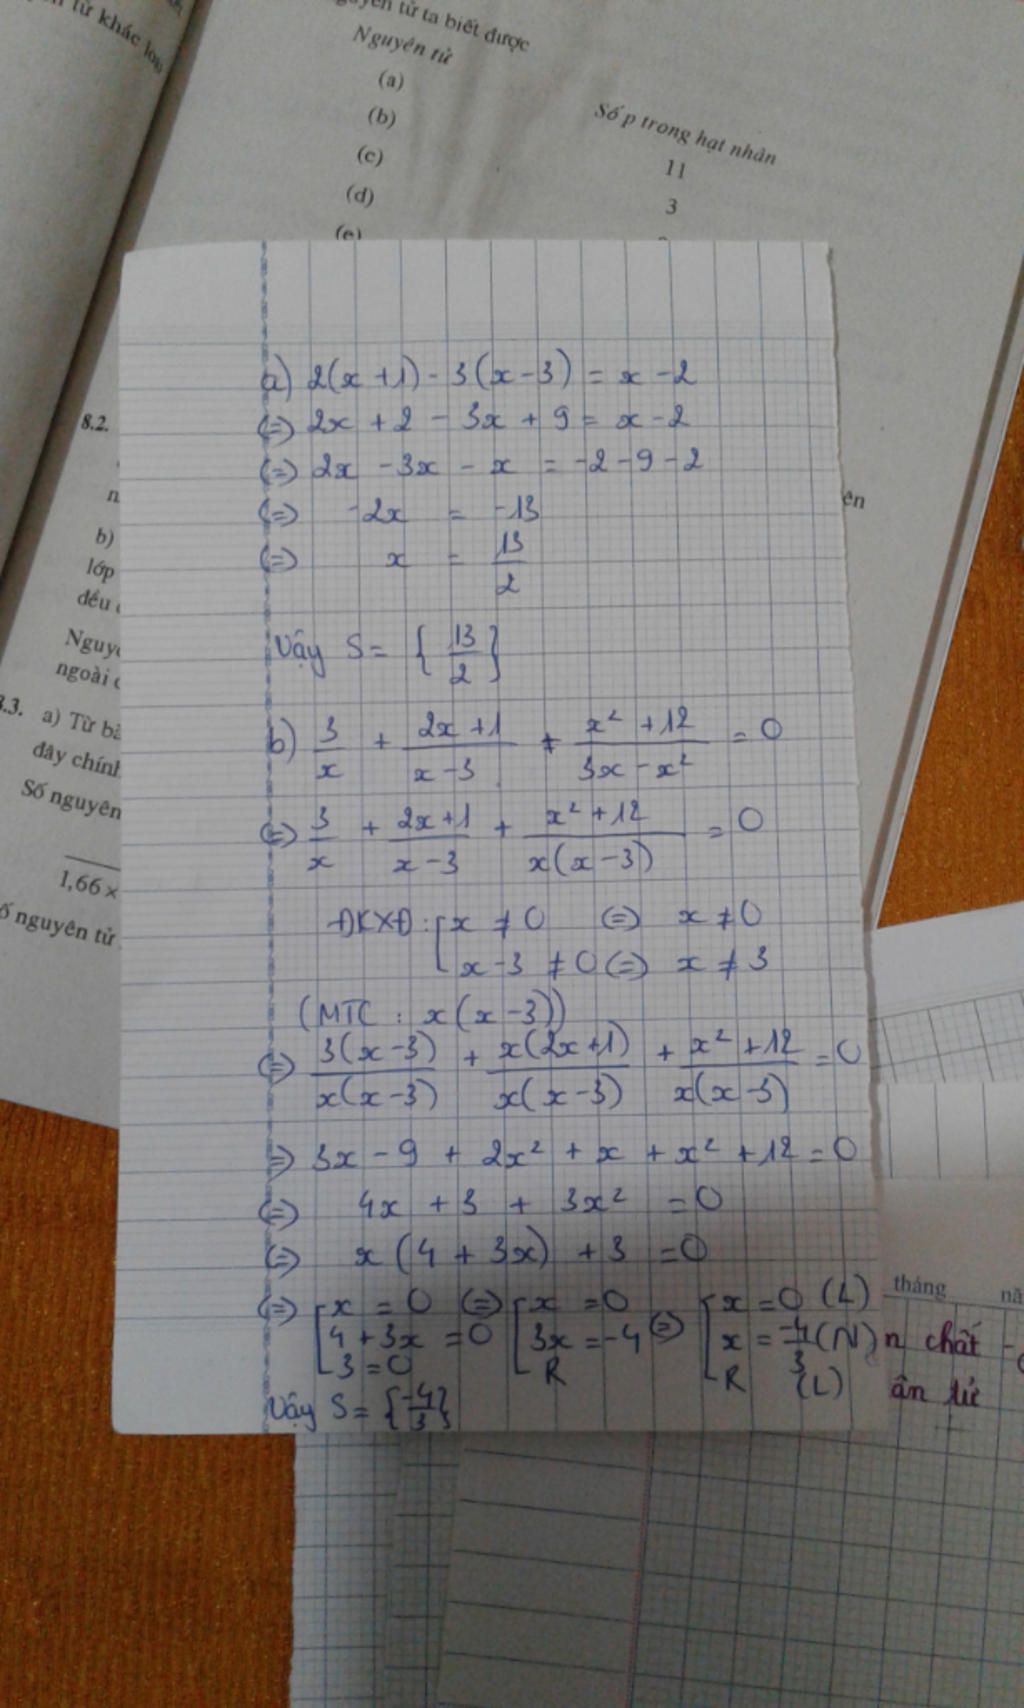 yên tử ta biết được
Nguyên tử
tử khác loại
(a)
(b)
(c)
(d)
(e)
Số p trong hạt nhân
11
3
8.2.
b)
lớp
đều
ngoài
8.3. a) Từ
dây chính
Số nguyên
1,66 ×
nguyên tử
a) 2(x + 1) - 3(x - 3) = x - 2
(=) 2x + 2 - 3x + 9 = x - 2
(=) 2x - 3x - x = -2 - 9 - 2
(=) -2x = -13
(=) x = 13/2
Vậy S = {13/2}
b) 3/x + 2x + 1/x - 3 + x² + 12/3x - x² = 0
(=) 3/x + 2x + 1/x - 3 + x² + 12/x(x - 3) = 0
ĐKXĐ : [x ≠ 0 (=) x ≠ 0
x - 3 ≠ 0 (=) x ≠ 3
(MTC : x(x - 3))
(=) 3(x - 3)/x(x - 3) + x(2x + 1)/x(x - 3) + x² + 12/x(x - 3) = 0
=> 3x - 9 + 2x² + x + x² + 12 = 0
(=) 4x + 3 + 3x² = 0
(=) x(4 + 3x) + 3 = 0
(=) [x = 0 (=) [x = 0 [x = 0 (L)
4 + 3x = 0 3x = -4 (=) x = -4/3 (N)
3 = 0 R R (L)
Vậy S = {-4/3}
tháng
n chất -
ân tử